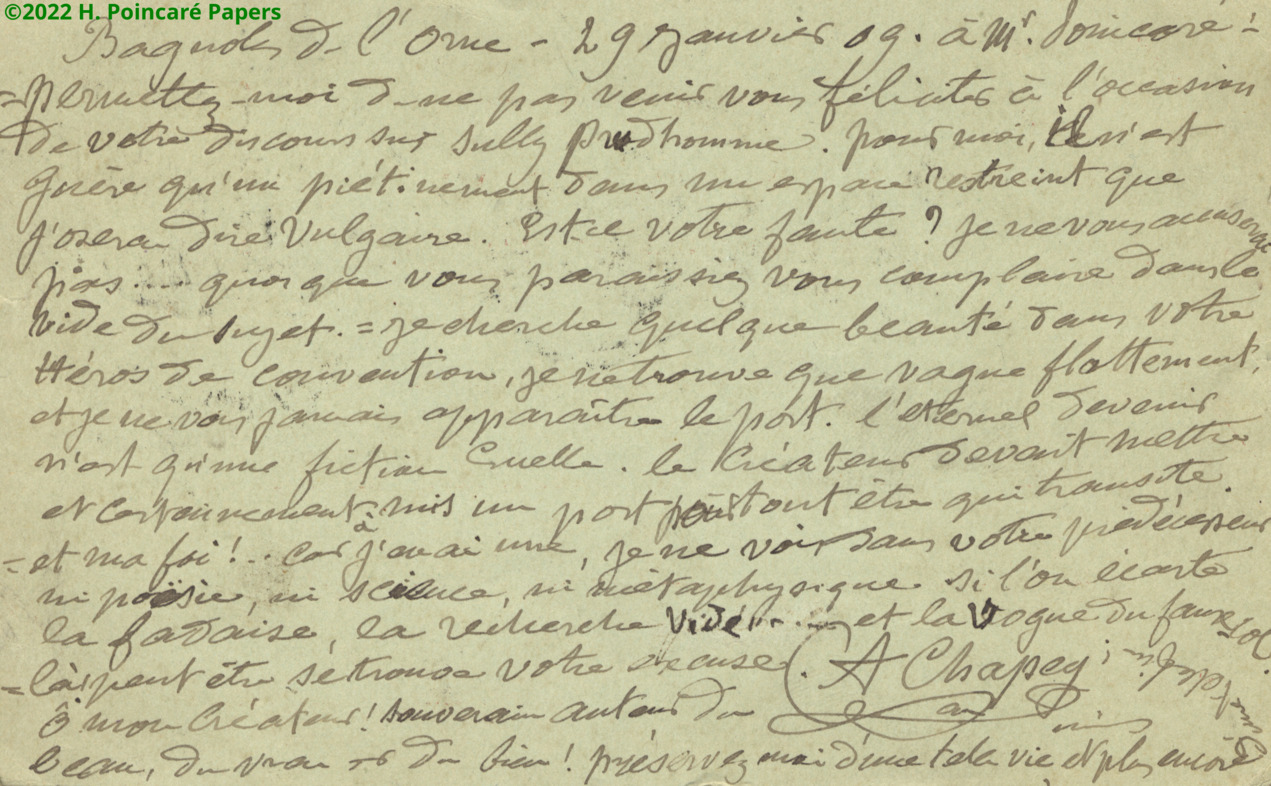 ©2022 H. Poincaré Papers
Bagnoles de l'Orne - 29 Janvier 09. à Mr. Poincaré -
= permettez-moi de ne pas venir vous féliciter à l'occasion
de votre discours sur Sully Prudhomme. pour moi, il n'est
guère qu'un piétinement dans un espace restreint que
j'oserai dire vulgaire. Est-ce votre faute ? je ne vous accuserai
pas.... quoique vous paraissiez vous complaire dans le
vide du sujet. = je cherche quelque beauté dans votre
Héros de convention, je ne trouve que vague flottement,
et je ne vois jamais apparaître le port. l'éternel devenir
n'est qu'une fiction cruelle. le Créateur devait mettre
et certainement a mis un port pour tout être qui transite.
= et ma foi !.. car j'en ai une, je ne vois dans votre prédécesseur
ni poësie, ni science, ni métaphysique. si l'on écarte
la fadaise, la recherche vide.... et la vogue du faux
= là peut être se trouve votre excuse. A Chapey
ô mon Créateur ! souverain auteur du
beau, du vrai et du bien ! préservez moi d'une telle vie et plus encore
d'une telle fin